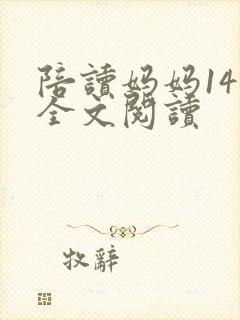 陪讀媽媽14
全文閱讀
牧辭